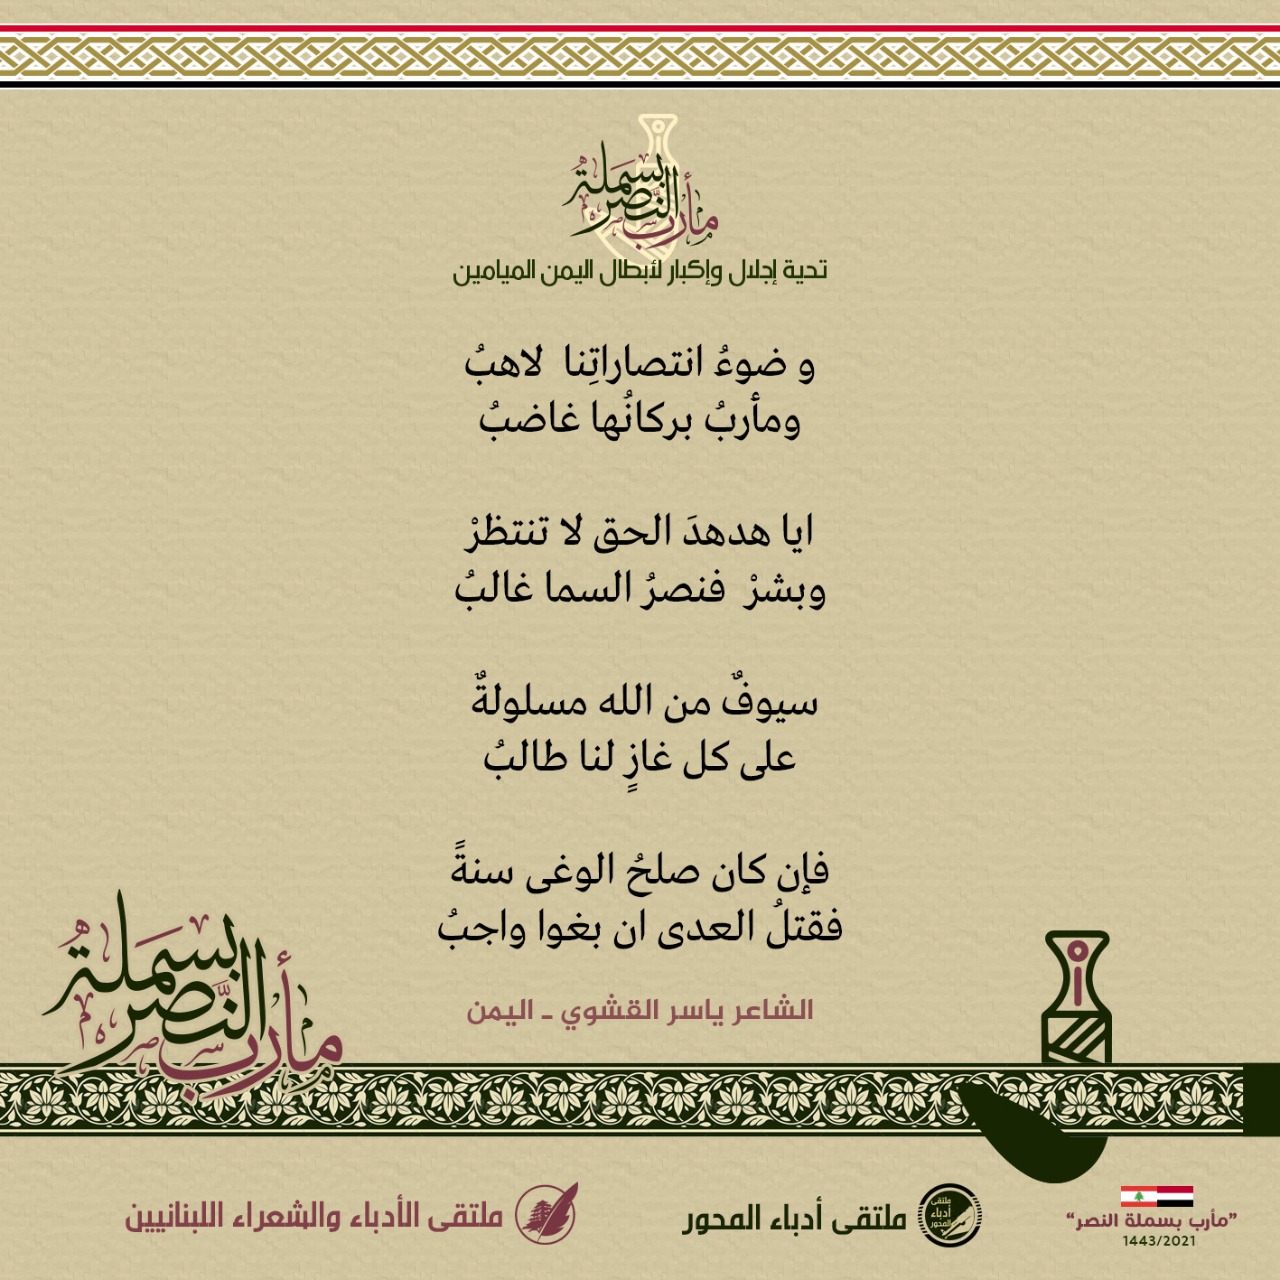 مأرب بسملة النصر
تحية إجلال وإكبار لأبطال اليمن الميامين
و ضوءُ انتصاراتِنا لاهبُ
ومأربُ بركانُها غاضبُ
ايا هدهدَ الحق لا تنتظرْ
وبشرْ فنصرُ السما غالبُ
سيوفٌ من الله مسلولةٌ
على كل غازٍ لنا طالبُ
فإن كان صلحُ الوغى سنةً
فقتلُ العدى ان بغوا واجبُ
الشاعر ياسر القشوي - اليمن
مأرب بسملة النصر
"مأرب بسملة النصر"
1443/2021
ملتقى أدباء المحور
ملتقى أدباء المحور
ملتقى الأدباء والشعراء اللبنانيين